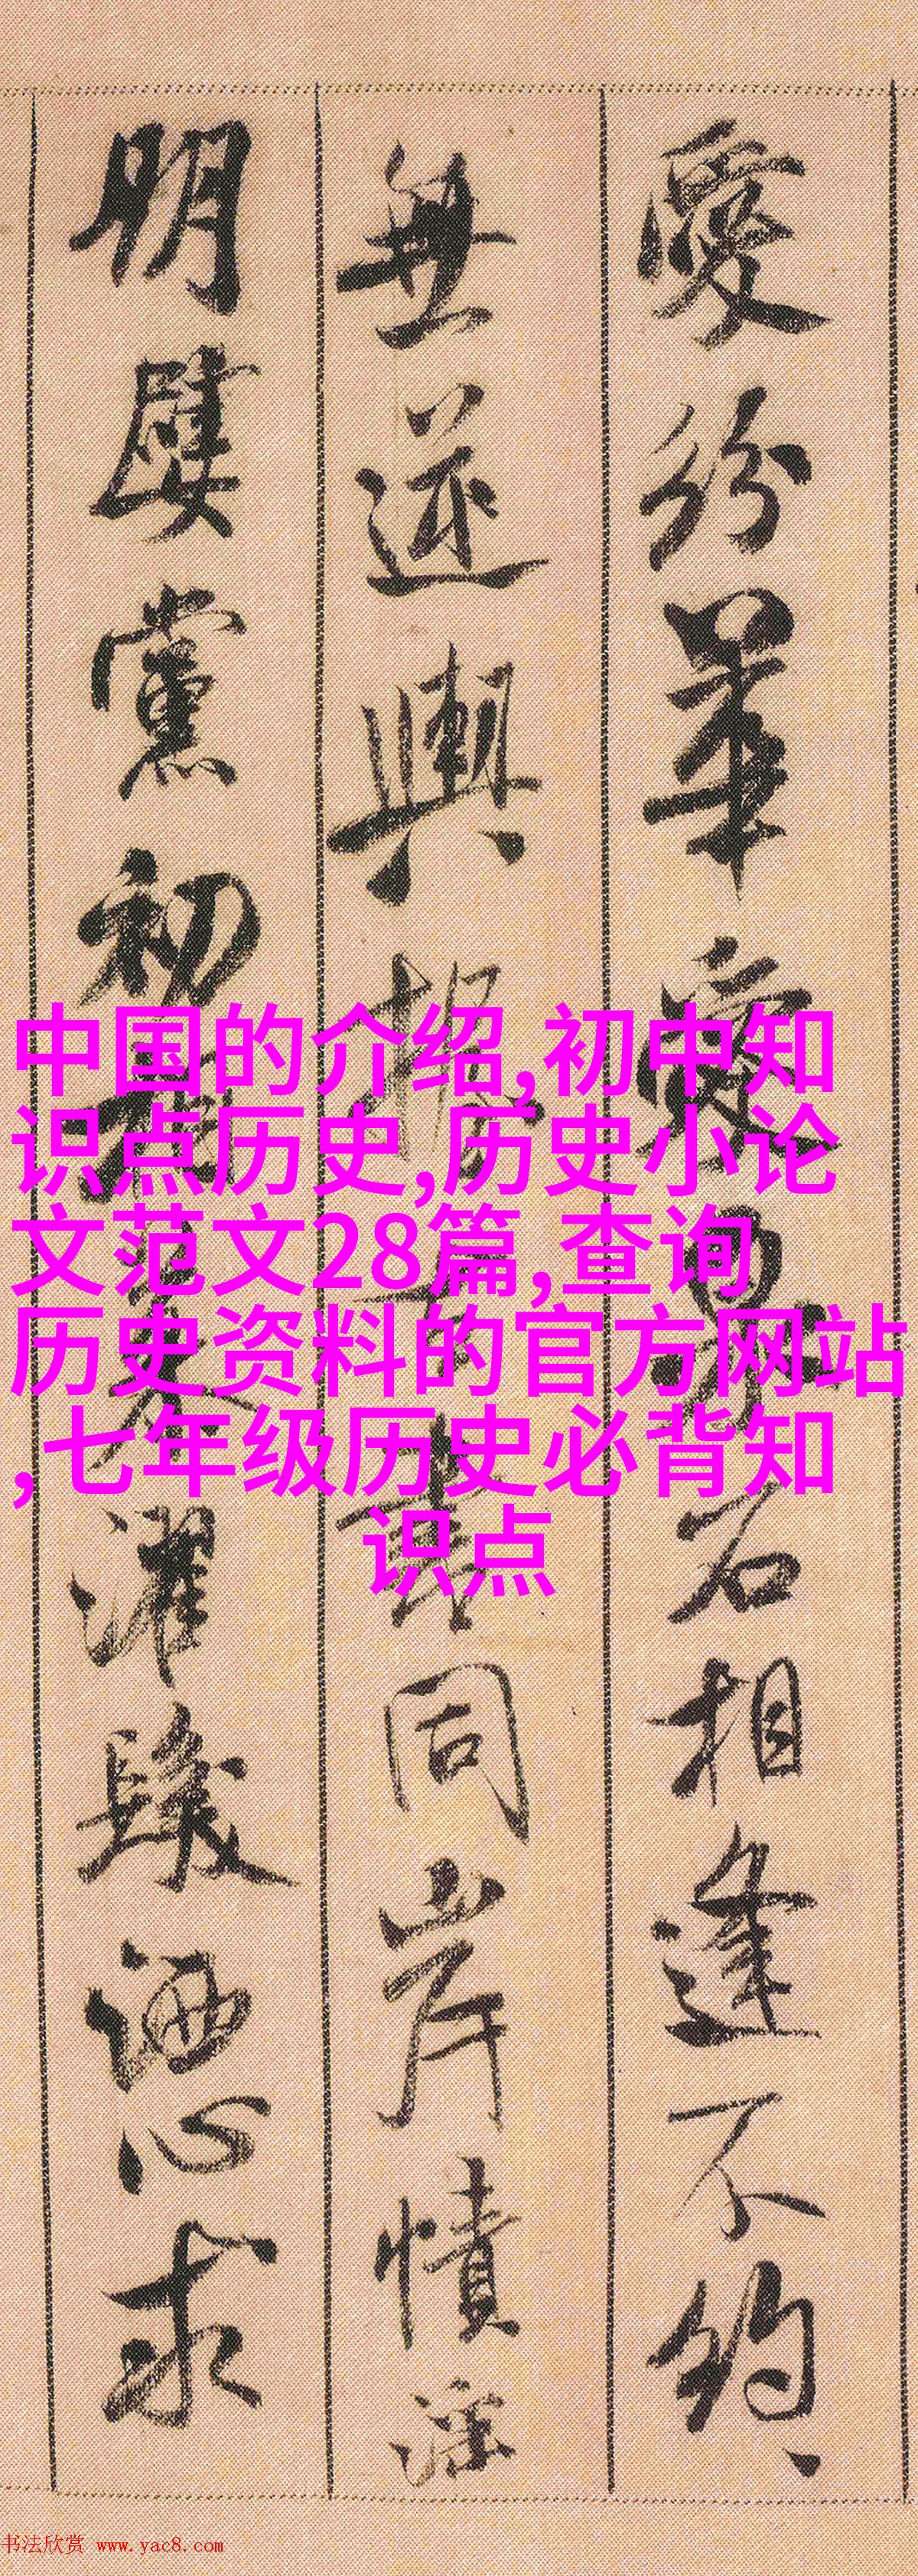 愛紛華愛泉石相逢不約
無逆與
同岸幘漉
明與黨初
濯髮洒心求
中国的介绍,初中知
识点历史,历史小论
文范文28篇,查询
历史资料的官方网站
,七年级历史必背知
识点
书法欣赏 www.yac8.com